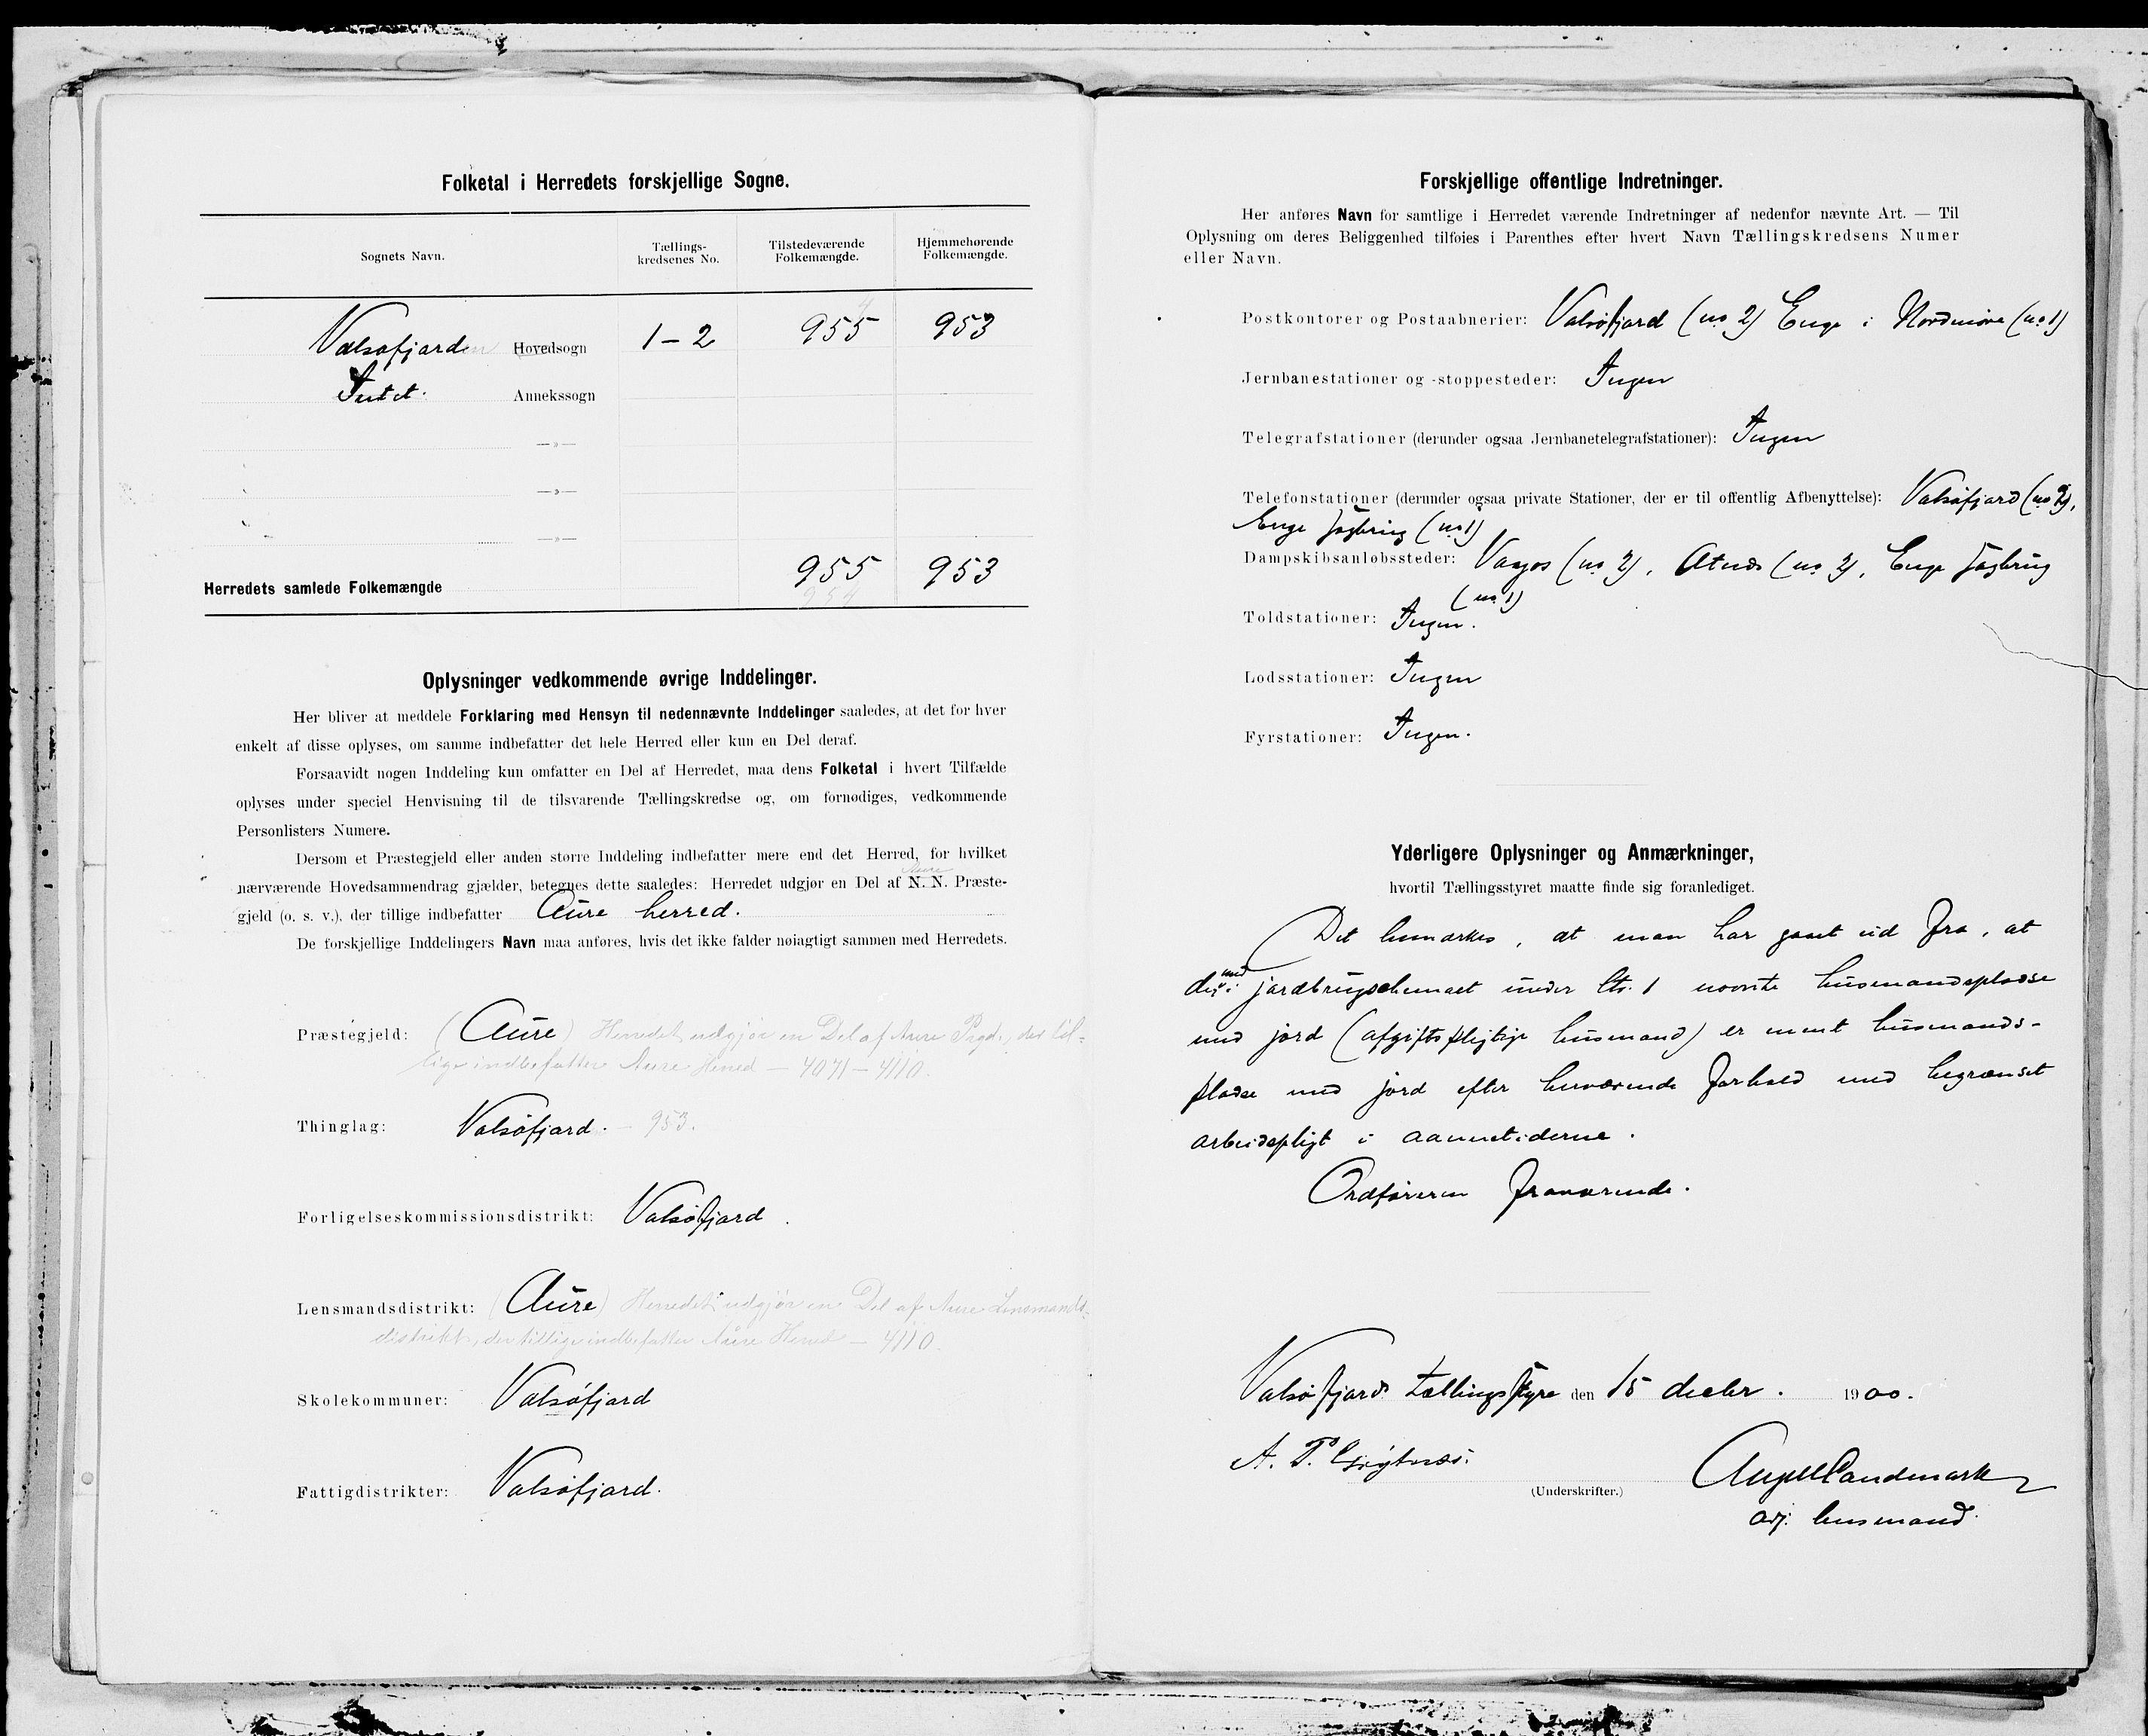 Folketal i Herredets forskjellige Sogne.
Sognets Navn.
Tællings-
kredsenes No.
Tilstedeværende
Folkemængde.
Hjemmehørende
Folkemængde.
Valsøfjorden Hovedsogn 1-2 955 4 953
Intet. Annekssogn
—»—
—»—
—»—
Herredets samlede Folkemængde 955 953
954
Oplysninger vedkommende øvrige Inddelinger.
Her bliver at meddele Forklaring med Hensyn til nedennævnte Inddelinger saaledes, at det for hver
enkelt af disse oplyses, om samme indbefatter det hele Herred eller kun en Del deraf.
Forsaavidt nogen Inddeling kun omfatter en Del af Herredet, maa dens Folketal i hvert Tilfælde
oplyses under speciel Henvisning til de tilsvarende Tællingskredse og, om fornødiges, vedkommende
Personlisters Numere.
Dersom et Præstegjeld eller anden større Inddeling indbefatter mere end det Herred, for hvilket
Aure
nærværende Hovedsammendrag gjælder, betegnes dette saaledes: Herredet udgjør en Del af N. N. Præste-
gjeld (o. s. v.), der tillige indbefatter Aure herred.
De forskjellige Inddelingers Navn maa anføres, hvis det ikke falder nøiagtigt sammen med Herredets.
Præstegjeld: (Aure) Herredet udgjør en Del af Aure Prgd., der til-
lige indbefatter Aure Herred — 4071 — 4110.
Thinglag: Valsøfjord. — 953.
Forligelseskommissionsdistrikt: Valsøfjord.
Lensmandsdistrikt: (Aure) Herredet udgjør en Del af Aure Lensmands-
distrikt, der tillige indbefatter Aure Herred — 4110.
Skolekommuner: Valsøfjord
Fattigdistrikter: Valsøfjord.
Forskjellige offentlige Indretninger.
Her anføres Navn for samtlige i Herredet værende Indretninger af nedenfor nævnte Art. — Til
Oplysning om deres Beliggenhed tilføies i Parenthes efter hvert Navn Tællingskredsens Numer
eller Navn.
Postkontorer og Postaabnerier: Valsøfjord (no 2) Enge i Nordmøre (no 1)
Jernbanestationer og -stoppesteder: Ingen
Telegrafstationer (derunder ogsaa Jernbanetelegrafstationer): Ingen
Telefonstationer (derunder ogsaa private Stationer, der er til offentlig Afbenyttelse): Valsøfjord (no 2),
Enge (no 1)
Dampskibsanløbssteder: Vaagos (no 2), (no 2), Enge
(no 1)
Toldstationer: Ingen.
Lodsstationer: Ingen
Fyrstationer: Ingen.
Yderligere Oplysninger og Anmærkninger,
hvortil Tællingsstyret maatte finde sig foranlediget.
Det bemærkes, at man har gaaet ud fra, at
med
der i jordbrugschemaet under Litr. 1 nævnte husmandspladse
med jord (afgiftspligtige husmænd) er ment husmands-
pladse med jord efter herværende forhold med begrænset
arbeidspligt i aannetiderne.
Ordføreren fraværende.
Valsøfjords tællingsstyre den 15 decbr. 1900.
A. P.
(Underskrifter.)
Landmark
lensmand.